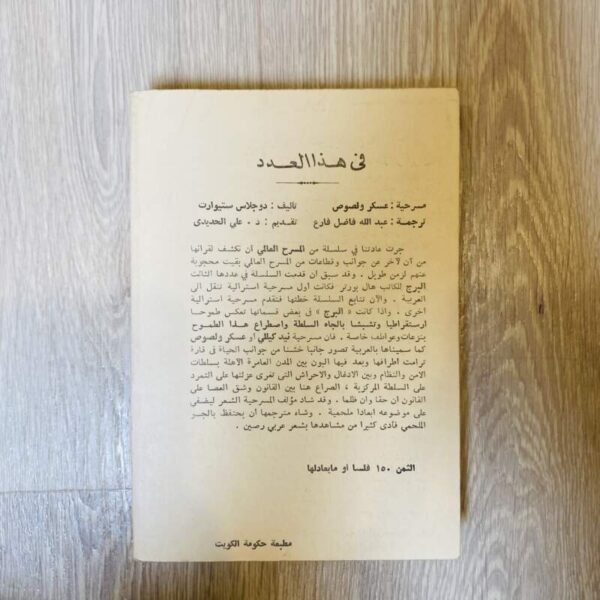 فى هذا العدد
مسرحية : عسكر ولصوص تأليف : دوجلاس ستيوارت
ترجمة : عبد الله فاضل فارع تقديم : د . على الحديدى
جرت عادتنا في سلسلة من المسرح العالي أن تكشف لقرائها
من آن لآخر عن جوانب وقطاعات من المسرح العالي بقيت محجوبة
عنهم لزمن طويل . وقد سبق ان قدمت السلسلة في عددها الثالث
البرج للكاتب هال بورتر فكانت أول مسرحية استرالية تنقل الى
العربية . والآن تتابع السلسلة خطتها فتقدم مسرحية استرالية
اخرى . واذا كانت « البرج » فى بعض قسماتها تعكس طموحا
ارستقراطيا وتشبثا بالجاه السلطة واصطراع هذا الطموح
بنزعات وعواطف خاصة . فان مسرحية نيد كيللي أو عسكر ولصوص
كما سميناها بالعربية تصور جانبا خشنا من جوانب الحياة في قارة
ترامت اطرافها وبعد فيها البون بين المدن العامرة الآهلة بسلطات
الامن والنظام وبين الادغال والاحراش التى تغرى عزلتها على التمرد
على السلطة المركزية ، الصراع هنا بين القانون وشق العصا على
القانون ان حقا وان ظلما . وقد شاء مؤلف المسرحية الشعر ليضفى
على موضوعه ابعادا ملحمية . وشاء مترجمها أن يحتفظ بالجو
الملحمي فأدى كثيرا من مشاهدها بشعر عربي رصين .
الثمن ١٥٠ فلسا أو مايعادلها
مطبعة حكومة الكويت